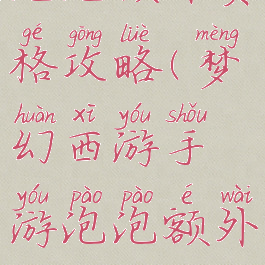 gé gōng lüè mèng
格攻略(梦
huàn xī yóu shǒu
幻西游手
yóu pào pào é wài
游泡泡额外